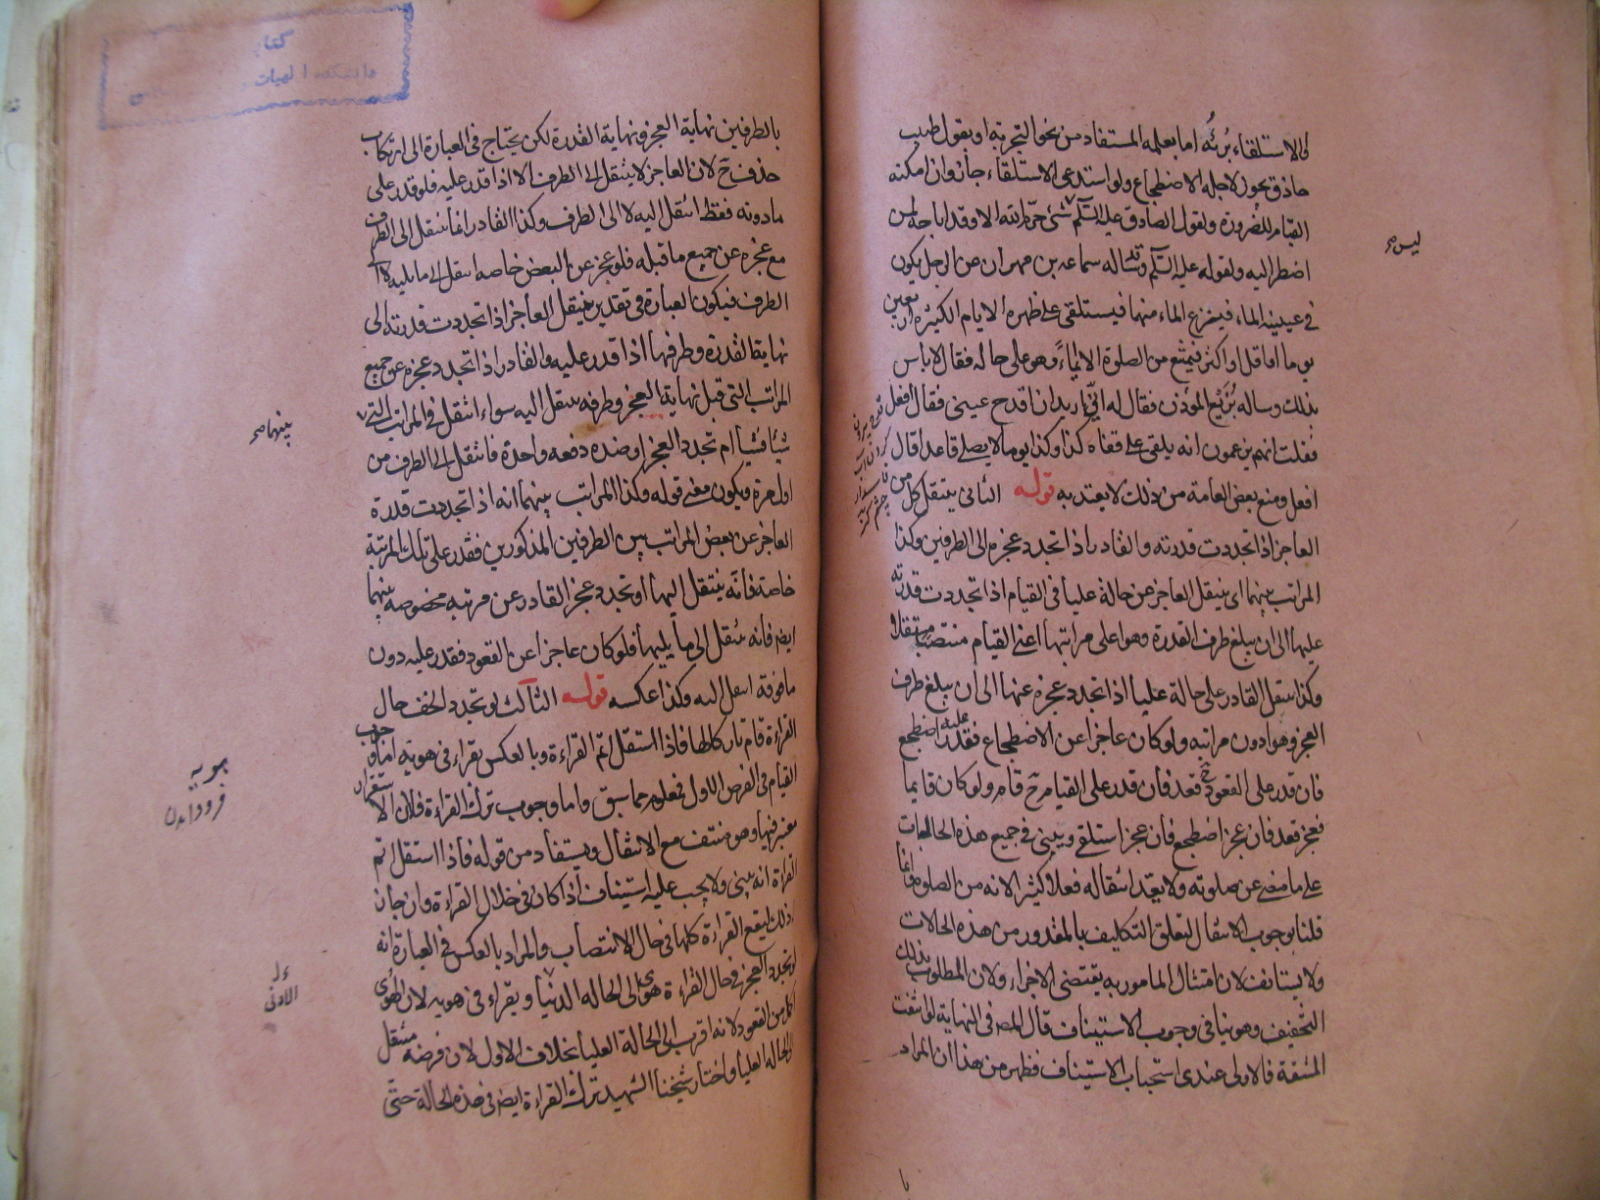 والاستلقاء برئه اما بعلمه المستفاد من نحو التجربة او بقول طبيب
حاذق يجوز لاجله الاضطجاع ولو استدعى الاستلقاء جاز وان امكنه
القيام للضرورة ولقول الصادق عليه السلم شئ حرمه الله الا وقد اباحه لمن
ليس
اضطر اليه ولقوله عليه السلم وقد ساله سماعة بن مهران عن الرجل يكون
في عينيه الماء فينزع الماء منهما فيستلقي على ظهره الايام الكثيرة اربعين
يوما او اقل او اكثر فيمتنع من الصلوة الا ايماء وهو على حاله فقال لا باس
بذلك وساله بزيع المؤذن فقال له اني اريد ان اقدح عيني فقال افعل
فقلت انهم يزعمون انه يلقى على قفاه كذا وكذا يوما لا يصلي قاعدا قال
افعل ومنع بعض العامة من ذلك لا يعتد به قوله الثاني ينتقل كل من
العاجز اذا تجددت قدرته والقادر اذا تجدد عجزه الى الطرفين وكذا
المراتب بينهما اي ينتقل العاجز عن حالة عليا في القيام اذا تجددت قدرته
عليها الى ان يبلغ طرف القدرة وهو اعلى مراتبها اعني القيام منتصبا مستقلا
وكذا ينتقل القادر على حالة عليا اذا تجدد عجزه عنها الى ان يبلغ طرف
العجز وهو ادون مراتبه ولو كان عاجزا عن الاضطجاع فقدر عليه اضطجع
فان قدر على القعود ح قعد فان قدر على القيام ح قام ولو كان قايما
فعجز قعد فان عجز اضطجع فان عجز استلقى ويبنى في جميع هذه الحالات
على ما مضى من صلوته ولا يعد انتقاله فعلا كثيرا لانه من الصلوة وانما
قلنا بوجوب الانتقال لتعلق التكليف بالمقدور من هذه الحالات
ولا يستانف لان امتثال المامور به يقتضى الاجزاء ولان المطلوب بذلك
التخفيف وهو ينافي وجوب الاستيناف قال المص في النهاية لو انتفت
المشقة فالاولى عندي استحباب الاستيناف فظهر من هذا ان المراد
بالطرفين نهاية العجز ونهاية القدرة لكن يحتاج في العبارة الى ارتكاب
حذف ح لان العاجز لا ينتقل الى الطرف الا اذا قدر عليه فلو قدر على
ما دونه فقط انتقل اليه لا الى الطرف وكذا القادر انما ينتقل الى الطرف
مع عجزه عن جميع ما قبله فلو عجز عن البعض خاصة انتقل الى ما يليه لا الى
الطرف فيكون العبارة في تقدير ينتقل العاجز اذا تجددت قدرته الى
نهاية القدرة وطرفها اذا قدر عليه والقادر اذا تجدد عجزه عن جميع
المراتب التي قبل نهاية العجز وطرفه ينتقل اليه سواء انتقل في المراتب التي
بينهما صح
شيئا فشيئا ام تجدد العجز او ضده دفعة واحدة فانتقل الى الطرف من
اول مرة ويكون معنى قوله وكذا المراتب بينهما انه اذا تجددت قدرة
العاجز عن بعض المراتب بين الطرفين المذكورين فقدر على تلك المرتبة
خاصة فانه ينتقل اليها او تجدد عجز القادر عن مرتبة مخصوصة بينهما
ايضا فانه ينتقل الى ما يليها فلو كان عاجزا عن القعود فقدر عليه دون
ما فوقه انتقل اليه وكذا عكسه قوله الثالث لو تجدد الخف حال
القراءة قام تاركا لها فاذا استقل اتم القراءة وبالعكس يقراء في هويه اما وجوب
القيام في الفرض الاول فمعلوم مما سبق واما وجوب ترك القراءة فلان الاستقرار
هويه
فرود امدن
معتبر فيها وهو منتف مع الانتقال ويستفاد من قوله فاذا استقل اتم
القراءة انه يبنى ولا يجب عليه استيناف اذا كان في خلال القراءة وان جاز
ذلك ليقع القراءة كلها في حال الانتصاب والمراد بالعكس في العبارة انه
لو تجدد العجز في حال القراءة هوى الى الحالة الدنيا ويقراء في هويه لان الهوى
الادنى
اكمل من القعود لانه اقرب الى الحالة العليا بخلاف الاول لان فرضه منتقل
الى الحالة العليا واختار شيخنا الشهيد ترك القراءة ايضا في هذه الحالة حتى